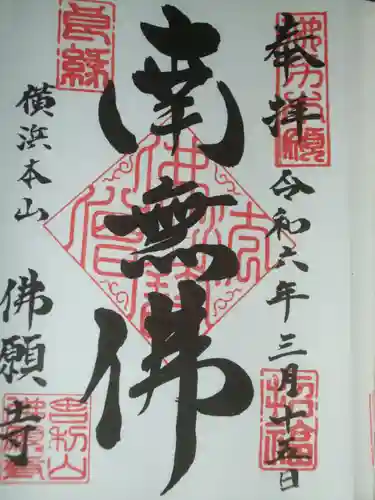 奉拝
令和六年三月十五日
南無佛
良縁
横浜本山
佛願寺